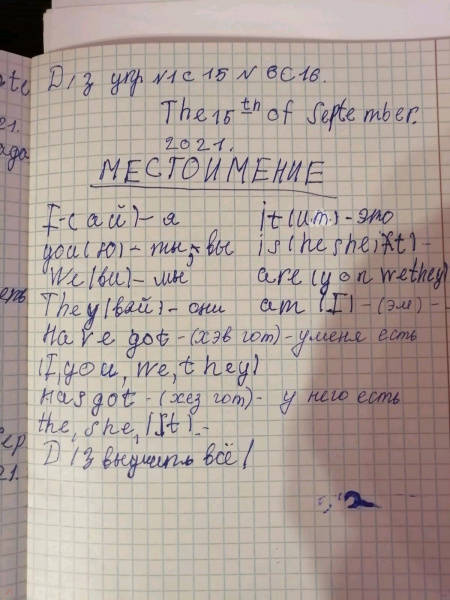 Д/з упр N1 с 15 N 8 с 16.
The 15th of September.
2021.
МЕСТОИМЕНИЕ
I-(ай)-я it(ит)-это
you(ю)-ты, вы is(he she, it)-
We(ви)-мы are(you we they)
They(вэй)-они am(I)-(эм)-
Have got-(хэв гот)-у меня есть
(I, you, we, they)
Has got-(хез гот)- у него есть
the, she, (It).-
Д/з выучить всё!